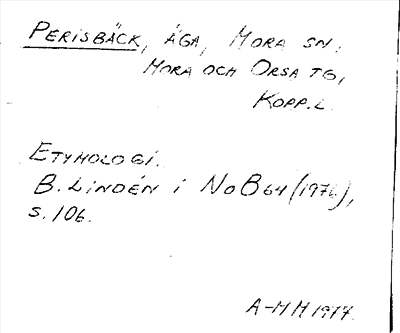 PERISBÄCK, ÄGA, MORA SN.
MORA OCH ORSA TG,
KOPP.L.
ETYMOLOGI.
B. LINDÉN i NoB 64 (1976),
S. 106.
A-MH 1977.